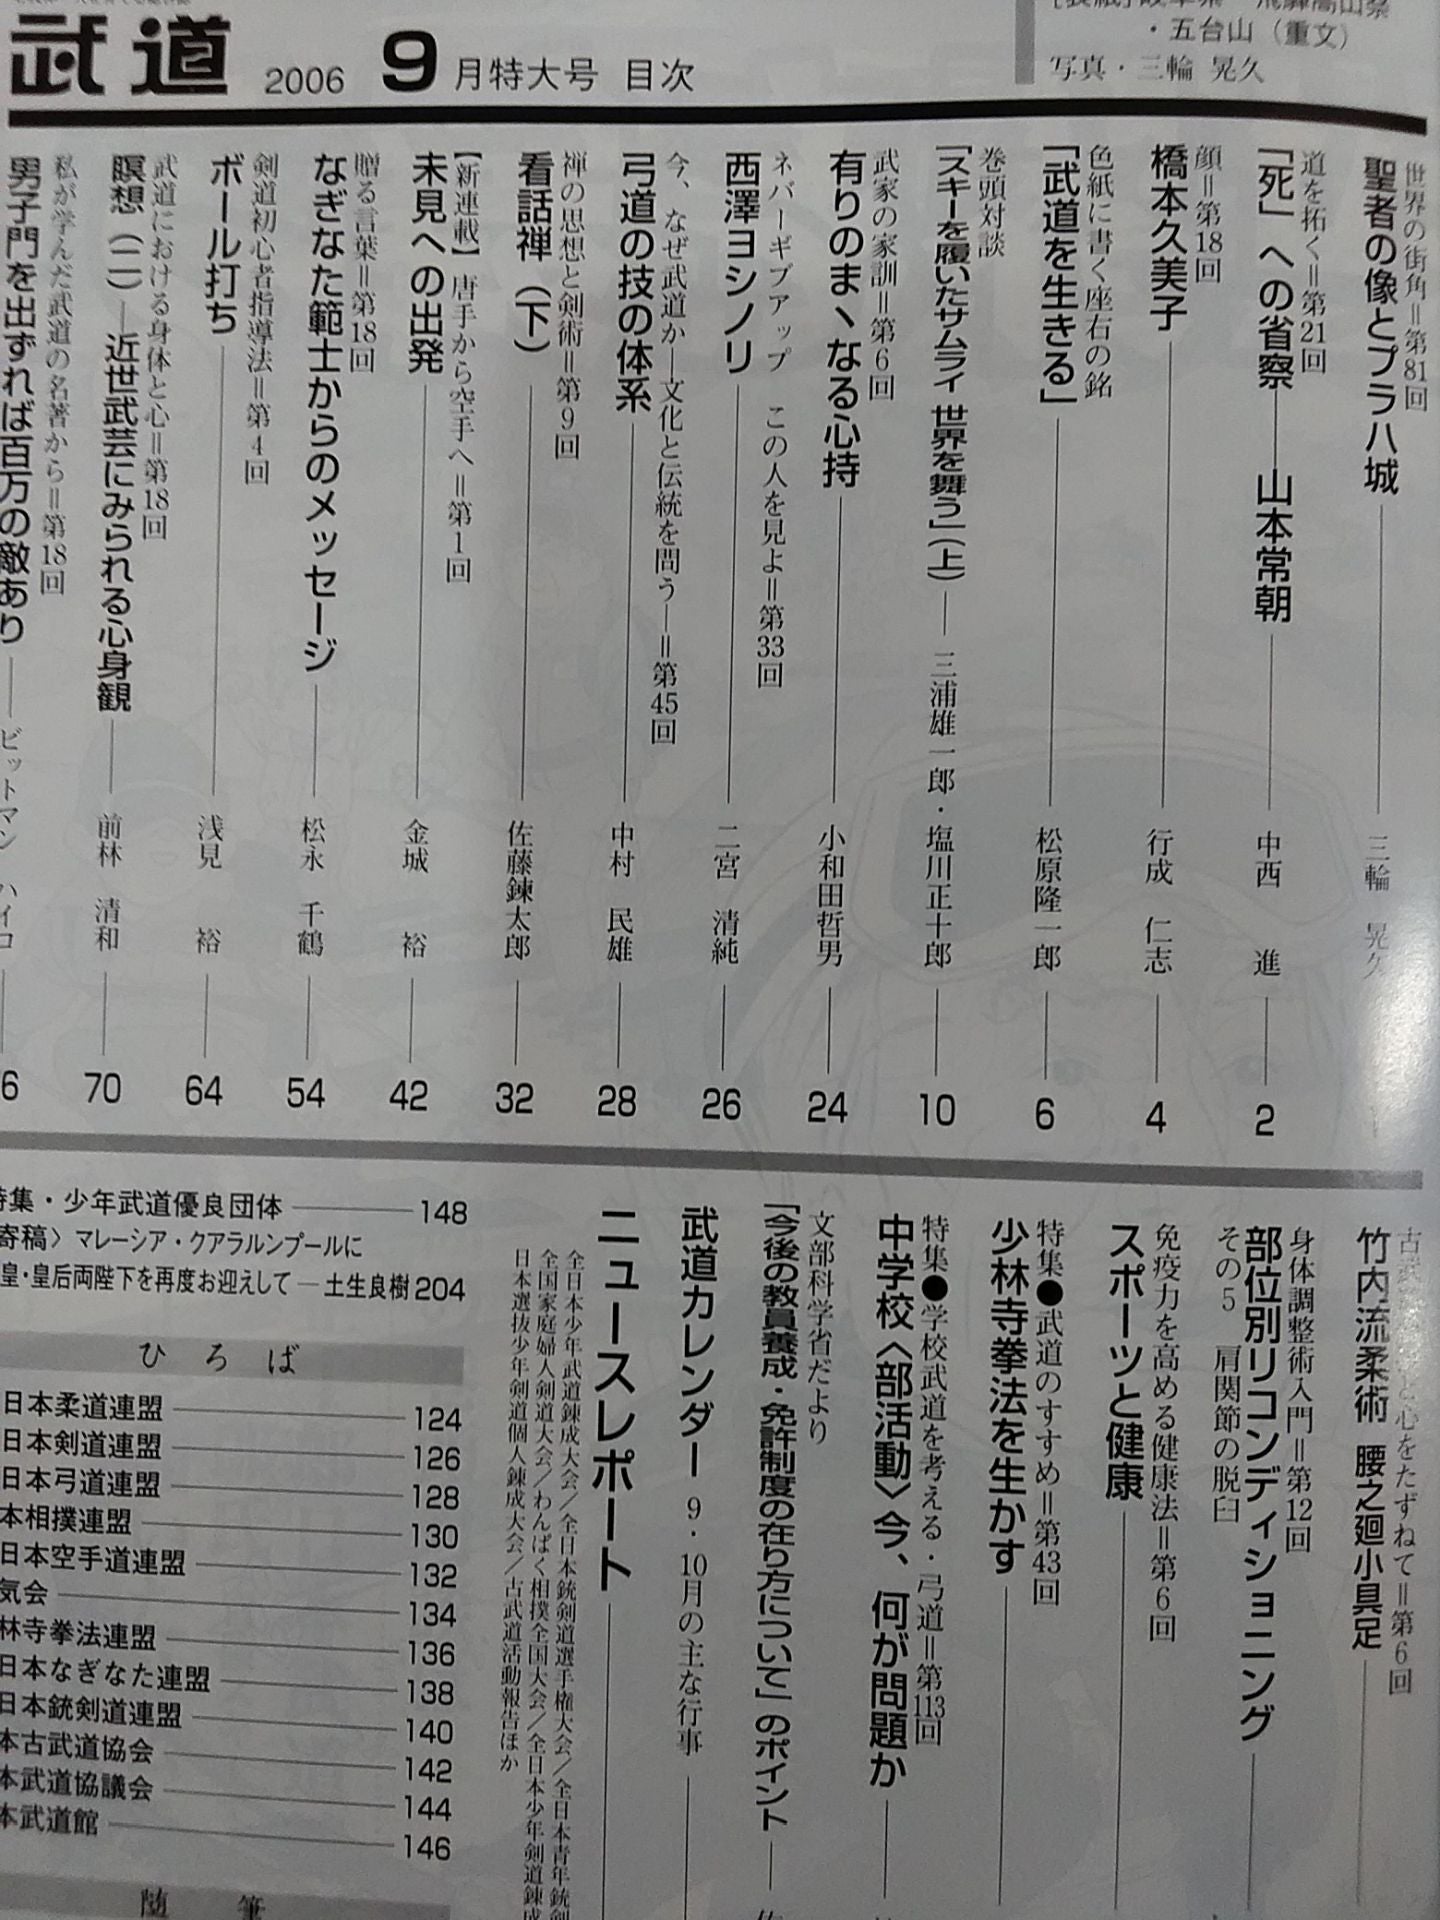 武道 2006 9月特大号 目次
・五台山（重文）
写真・三輪 晃久
世界の街角＝第81回
聖者の像とプラハ城 三輪 晃久
道を拓く＝第21回
「死」への省察――山本常朝 中西 進 2
顔＝第18回
橋本久美子 行成 仁志 4
色紙に書く座右の銘
「武道を生きる」 松原隆一郎 6
巻頭対談
「スキーを履いたサムライ 世界を舞う」（上） 三浦雄一郎・塩川正十郎 10
武家の家訓＝第6回
有りのまヽなる心持 小和田哲男 24
ネバーギブアップ この人を見よ＝第33回
西澤ヨシノリ 二宮 清純 26
今、なぜ武道か―文化と伝統を問う―＝第45回
弓道の技の体系 中村 民雄 28
禅の思想と剣術＝第9回
看話禅（下） 佐藤錬太郎 32
【新連載】唐手から空手へ＝第1回
未見への出発 金城 裕 42
贈る言葉＝第18回
なぎなた範士からのメッセージ 松永 千鶴 54
剣道初心者指導法＝第4回
ボール打ち 浅見 裕 64
武道における身体と心＝第18回
瞑想（二）―近世武芸にみられる心身観 前林 清和 70
私が学んだ武道の名著から＝第18回
男子門を出ずれば百万の敵あり ビットマン ハイコ 6
古武 心をたずねて＝第6回
竹内流柔術 腰之廻小具足
身体調整術入門＝第12回
部位別リコンディショニング
その5 肩関節の脱臼
免疫力を高める健康法＝第6回
スポーツと健康
特集●武道のすすめ＝第43回
少林寺拳法を生かす
特集●学校武道を考える・弓道＝第113回
中学校〈部活動〉今、何が問題か
文部科学省だより
「今後の教員養成・免許制度の在り方について」のポイント
武道カレンダー 9・10月の主な行事
ニュースレポート
全日本少年武道錬成大会／全日本銃剣道選手権大会／全日本青年銃剣
全国家庭婦人剣道大会／わんぱく相撲全国大会／全日本少年剣道錬成
日本選抜少年剣道個人錬成大会／古武道活動報告ほか
特集・少年武道優良団体 148
寄稿〉マレーシア・クアラルンプールに
皇・皇后両陛下を再度お迎えして―土生良樹 204
ひろば
日本柔道連盟 124
日本剣道連盟 126
日本弓道連盟 128
本相撲連盟 130
日本空手道連盟 132
気会 134
林寺拳法連盟 136
日本なぎなた連盟 138
日本銃剣道連盟 140
本古武道協会 142
本武道協議会 144
本武道館 146
随筆